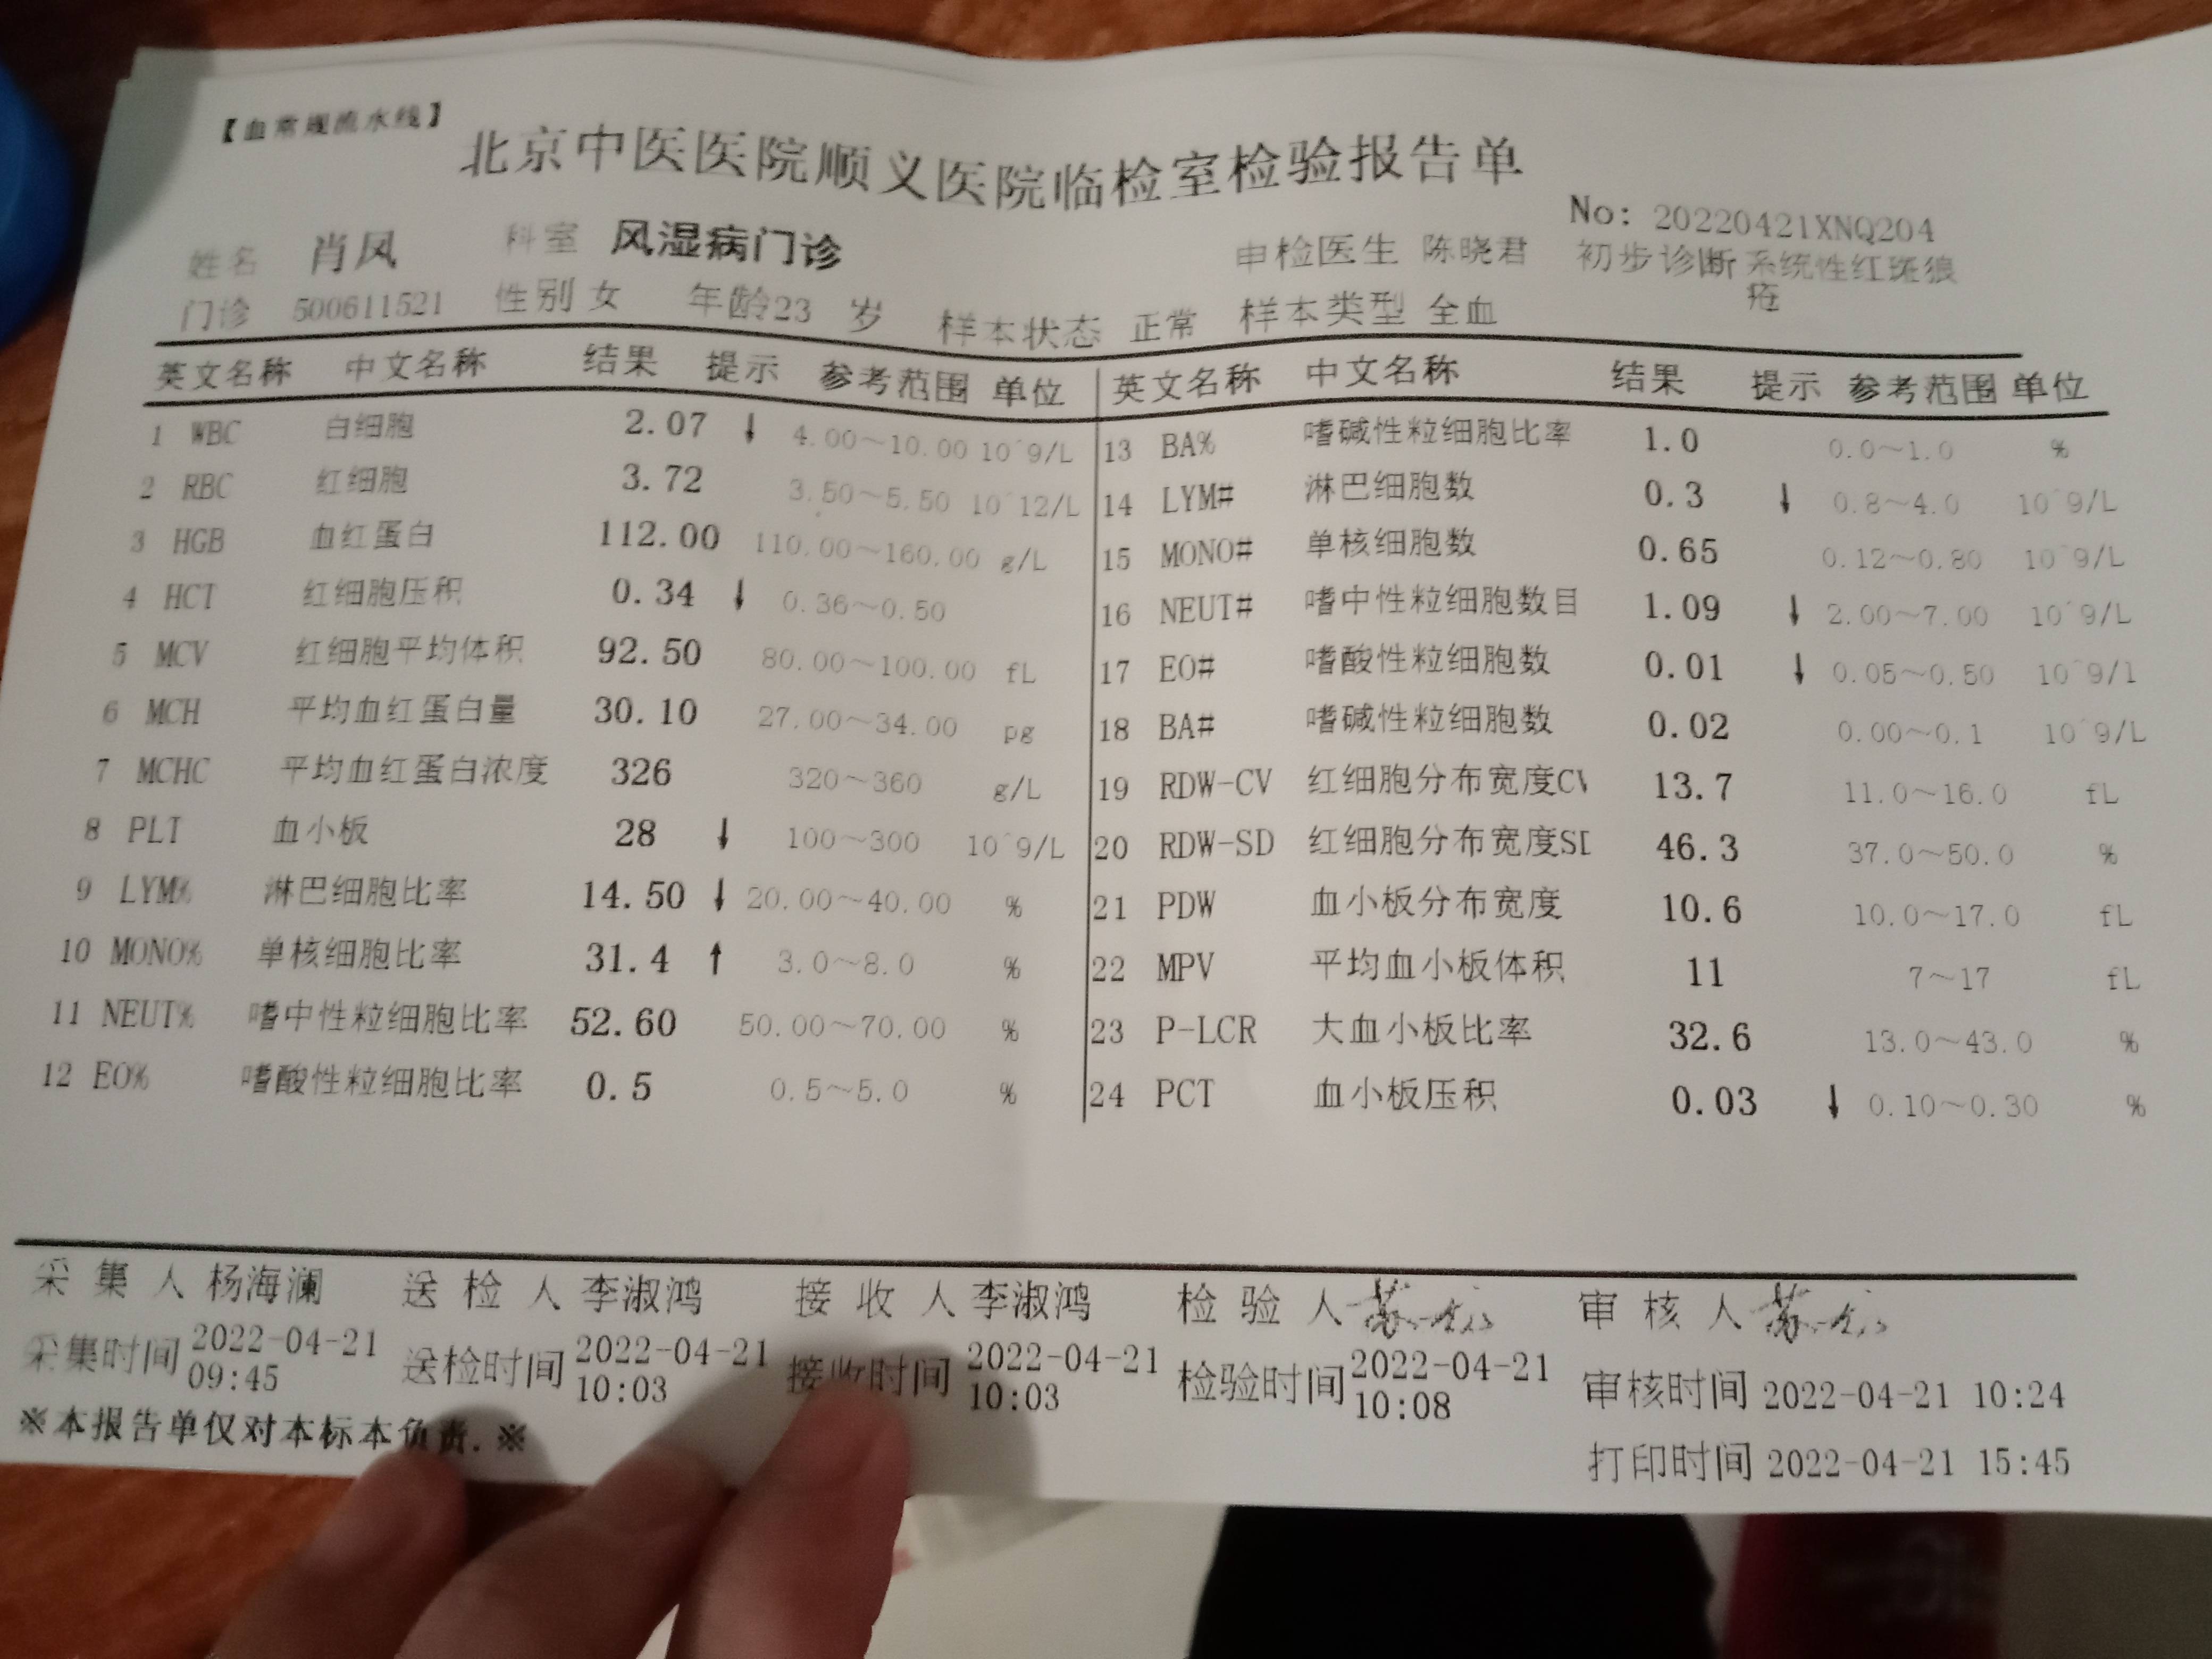 【血常规流水线】
北京中医医院顺义医院临检室检验报告单
No: 20220421XNQ204
姓名 肖凤 科室 风湿病门诊 申检医生 陈晓君 初步诊断 系统性红斑狼疮
门诊 500611521 性别 女 年龄23 岁 样本状态 正常 样本类型 全血
英文名称 中文名称 结果 提示 参考范围 单位 英文名称 中文名称 结果 提示 参考范围 单位
1 WBC 白细胞 2.07 ↓ 4.00~10.00 10^9/L 13 BA% 嗜碱性粒细胞比率 1.0 0.0~1.0 %
2 RBC 红细胞 3.72 3.50~5.50 10^12/L 14 LYM# 淋巴细胞数 0.3 ↓ 0.8~4.0 10^9/L
3 HGB 血红蛋白 112.00 110.00~160.00 g/L 15 MONO# 单核细胞数 0.65 0.12~0.80 10^9/L
4 HCT 红细胞压积 0.34 ↓ 0.36~0.50 16 NEUT# 嗜中性粒细胞数目 1.09 ↓ 2.00~7.00 10^9/L
5 MCV 红细胞平均体积 92.50 80.00~100.00 fL 17 EO# 嗜酸性粒细胞数 0.01 ↓ 0.05~0.50 10^9/l
6 MCH 平均血红蛋白量 30.10 27.00~34.00 pg 18 BA# 嗜碱性粒细胞数 0.02 0.00~0.1 10^9/L
7 MCHC 平均血红蛋白浓度 326 320~360 g/L 19 RDW-CV 红细胞分布宽度CV 13.7 11.0~16.0 fL
8 PLT 血小板 28 ↓ 100~300 10^9/L 20 RDW-SD 红细胞分布宽度SD 46.3 37.0~50.0 %
9 LYM% 淋巴细胞比率 14.50 ↓ 20.00~40.00 % 21 PDW 血小板分布宽度 10.6 10.0~17.0 fL
10 MONO% 单核细胞比率 31.4 ↑ 3.0~8.0 % 22 MPV 平均血小板体积 11 7~17 fL
11 NEUT% 嗜中性粒细胞比率 52.60 50.00~70.00 % 23 P-LCR 大血小板比率 32.6 13.0~43.0 %
12 EO% 嗜酸性粒细胞比率 0.5 0.5~5.0 % 24 PCT 血小板压积 0.03 ↓ 0.10~0.30 %
采集人 杨海澜 送检人 李淑鸿 接收人 李淑鸿 检验人 审核人
采集时间 2022-04-21 09:45 送检时间 2022-04-21 10:03 接收时间 2022-04-21 10:03 检验时间 2022-04-21 10:08 审核时间 2022-04-21 10:24
※本报告单仅对本标本负责.※ 打印时间 2022-04-21 15:45